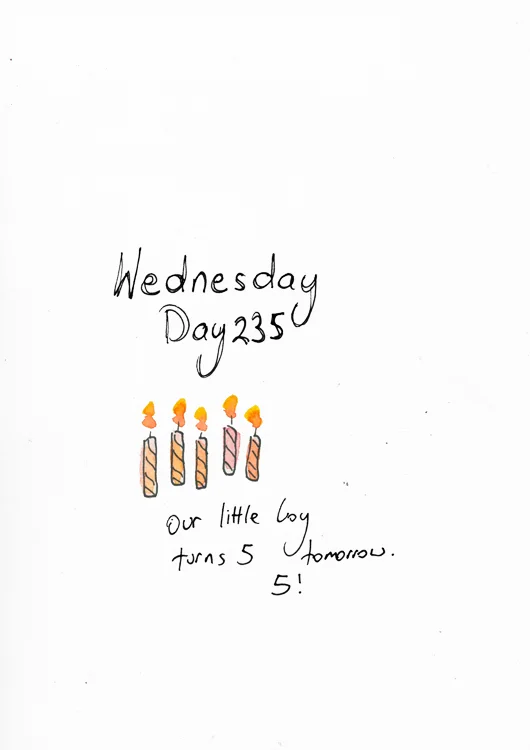 Wednesday
Day 235
Our little boy
turns 5 tomorrow.
5!